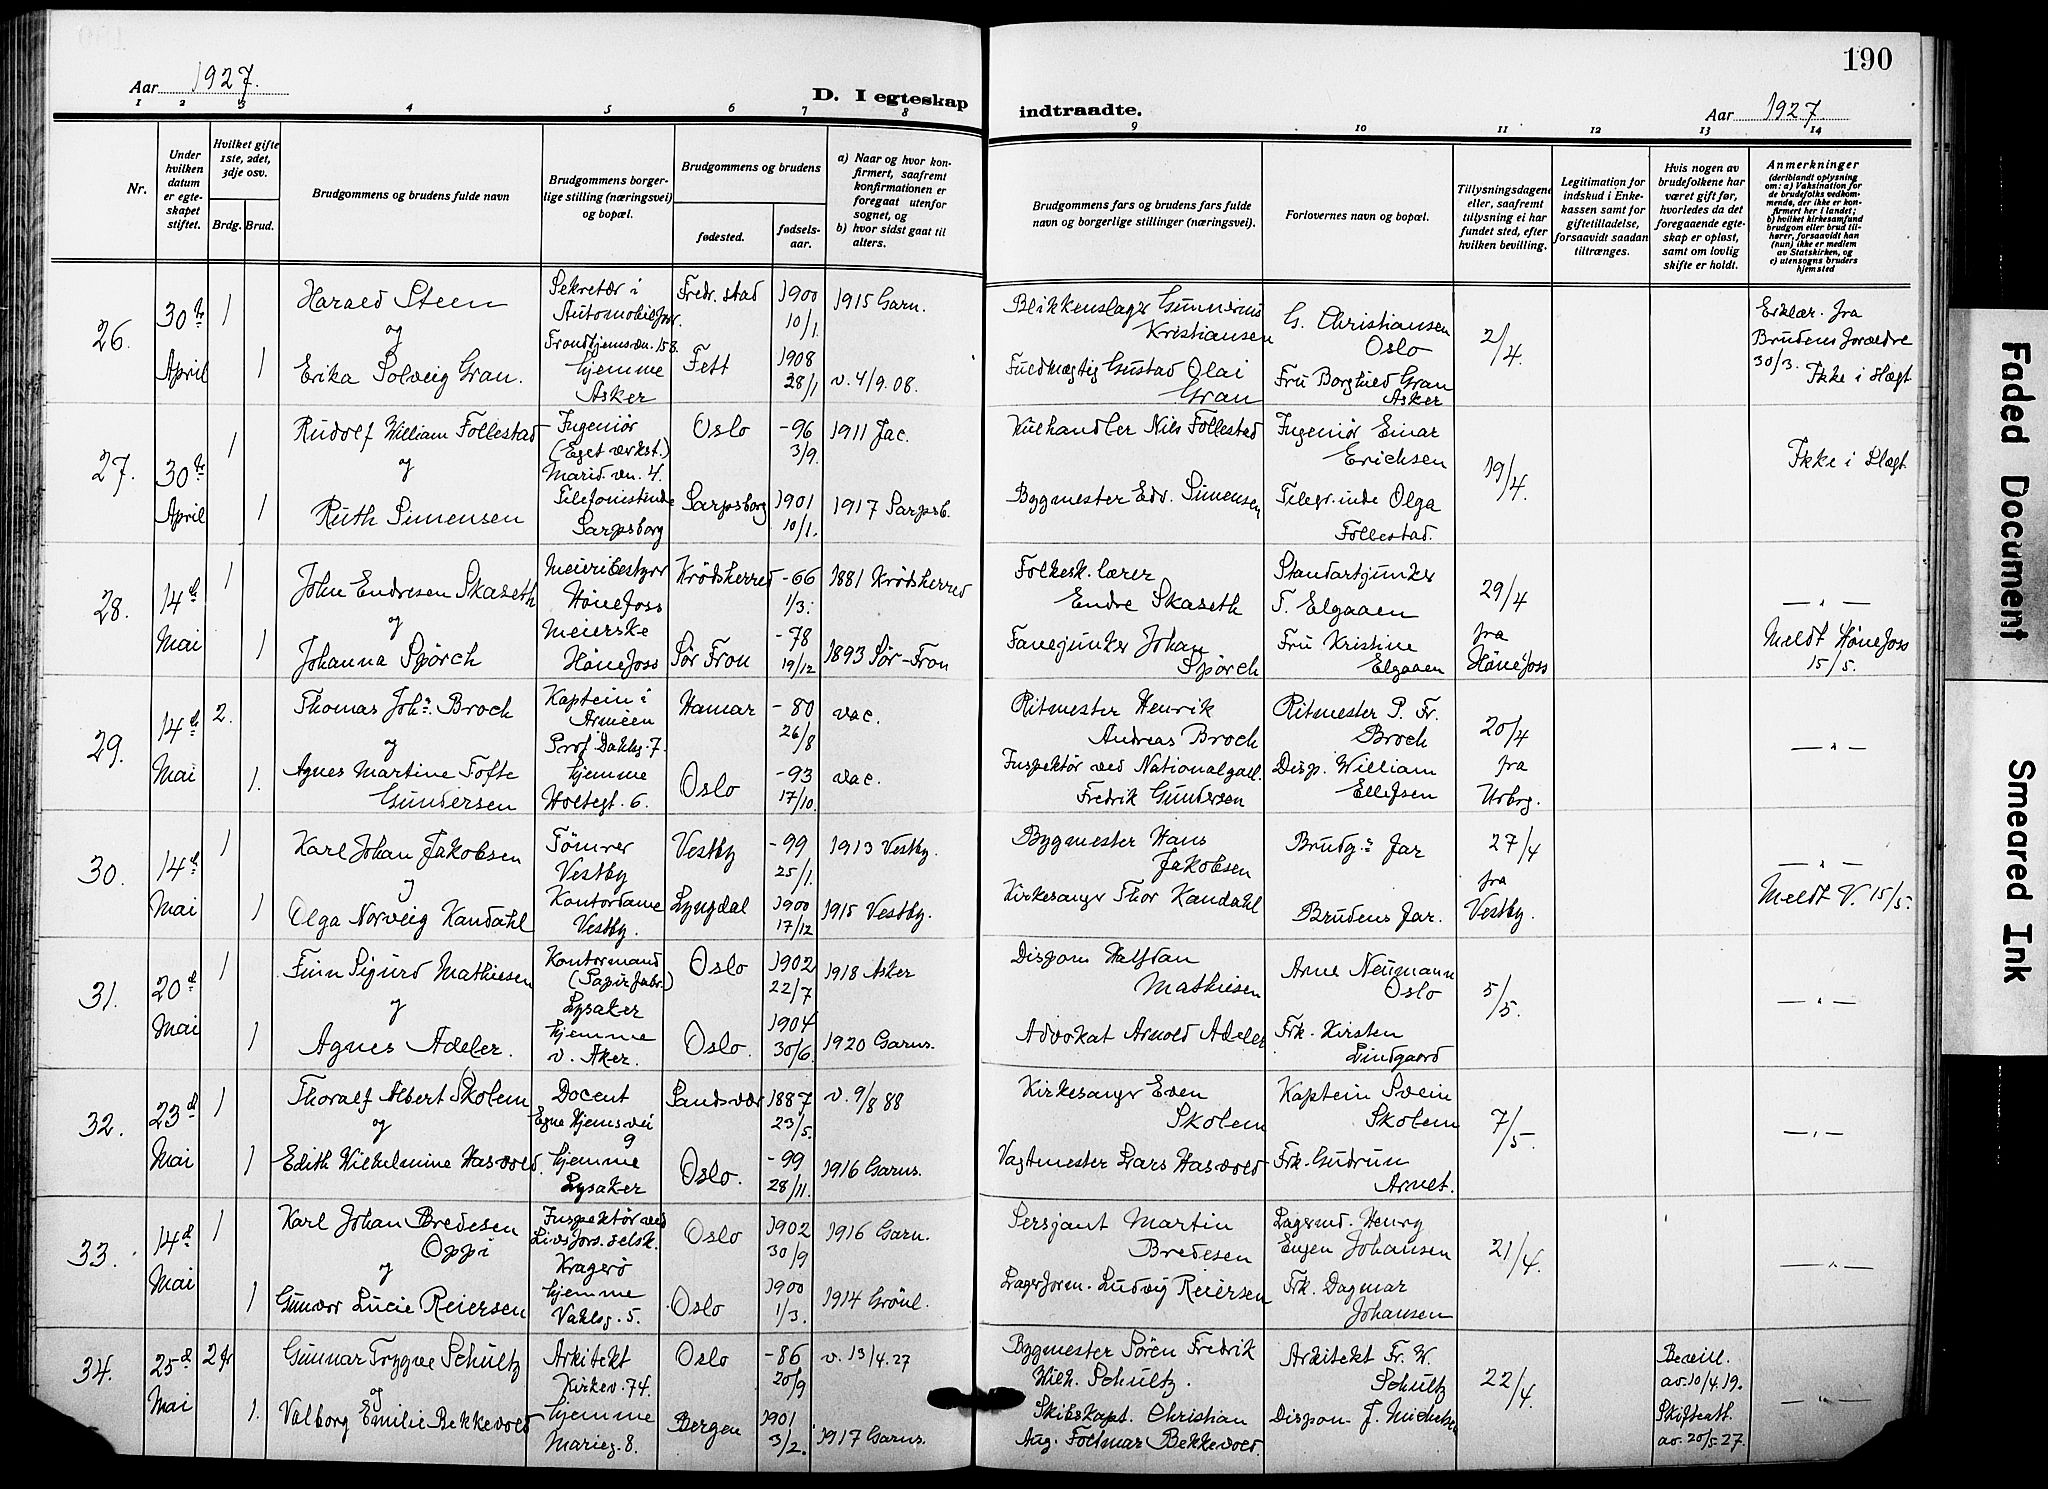 190
Aar 1927.
D. I egteskap
indtraadte.
Aar 1927.
1 2 3 4 5 6 7 8 9 10 11 12 13 14
Nr.
Under hvilken datum er egteskapet stiftet.
Hvilket gifte 1ste, 2det, 3dje osv.
Brdg. Brud.
Brudgommens og brudens fulde navn
Brudgommens borgerlige stilling (næringsvei) og bopæl.
Brudgommens og brudens
fødested.
fødselsaar.
a) Naar og hvor konfirmert, saafremt konfirmationen er foregaat utenfor sognet, og
b) hvor sidst gaat til alters.
Brudgommens fars og brudens fars fulde navn og borgerlige stillinger (næringsvei).
Forlovernes navn og bopæl.
Tillysningsdagene eller, saafremt tillysning ei har fundet sted, efter hvilken bevilling.
Legitimation for indskud i Enkekassen samt for giftetilladelse, forsaavidt saadan tiltrænges.
Hvis nogen av brudefolkene har været gift før, hvorledes da det foregaaende egteskap er opløst, samt om lovlig skifte er holdt.
Anmerkninger
(deriblandt oplysning om: a) Vaksination for de brudefolks vedkommende, der ikke er konfirmert her i landet; b) hvilket kirkesamfund brudgom eller brud tilhører, forsaavidt han (hun) ikke er medlem av Statskirken, og c) utensogns bruders hjemsted
26. 30te April 1 Harald Steen Sekretær i Automobilfor. Trondhjemsvn. 158 Fredr. stad 1900 10/1. 1915 Garn. Blikkenslager Gunnerius Kristiansen G. Christiansen Oslo 2/4. Erklær. fra Brudens foreldre 30/3. Ikke i slægt
og
1 Erika Solveig Gran. hjemme Asker Fett 1908 28/1 v. 4/9. 08. Fuldmægtig Gustav Olai Gran Fru Borghild Gran Asker
27. 30te April 1 Rudolf William Follestad Ingeniør (Eget værkst.) Marid.vn. 4. Oslo -96 3/9. 1911 Jac. Kulhandler Nils Follestad Ingeniør Einar Erichsen 19/4. Ikke i Slægt
og
1 Ruth Simensen Telefonistinde Sarpsborg Sarpsborg 1901 10/1. 1917 Sarpsb. Bygmester Edv. Simensen Telegr.inde Olga Follestad.
28. 14de Mai 1 John Endresen Skaseth Meieribestyrer Hønefoss Krødsherred -66 1/3. 1881 Krødsherred Folkesk. lærer Endre Skaseth Standartjunker T. Elgaaen 29/4 fra Hønefoss — " —
og
1 Johanna Spørch Meierske Hønefoss Sør Fron -78 19/12 1893 Sør-Fron Fanejunker Johan Spørch Fru Kristine Elgaaen Meldt Hønefoss 15/5.
29. 14de Mai 2. Thomas Johs. Broch Kaptein i Armeen Prof. Dahlsg. 7. Hamar -80 26/8 vac. Ritmester Henrik Andreas Broch Ritmester P. Fr. Broch 20/4 fra Urbrg. — " —
og
1. Agnes Martine Tofte Gundersen hjemme Holtegt. 6. Oslo -93 17/10. vac. Inspektør ved Nationalgall. Fredrik Gundersen Disp. William Ellefsen
30. 14de Mai 1 Karl Johan Jakobsen Tømrer Vestby Vestby -99 25/1. 1913 Vestby. Bygmester Hans Jakobsen Brudg.s far 27/4 fra Vestby. — " —
og
1 Olga Norveig Kandahl Kontordame Vestby. Lyngdal 1900 17/12 1915 Vestby. Kirkesanger Thor Kandahl Brudens far. Meldt V. 15/5.
31. 20de Mai 1 Finn Sigurd Mathiesen Kontormand (Papirfabr.) Lysaker Oslo 1902 22/7 1918 Asker Dispon. Halfdan Mathiesen Arne Neumann Oslo 5/5. — " —
og
1 Agnes Adeler. hjemme v. Aker. Oslo. 1904 30/6. 1920 Garns. Advokat Arnold Adeler Frk. Kirsten Lindgaard
32. 23de Mai 1 Thoralf Albert Skolem Docent Egne Hjemsvei 9 Sandsvær 1887 23/5. v. 9/8 88 Kirkesanger Even Skolem Kaptein Svein Skolem 7/5. — " —
og
1 Edith Wilhelmine Hasvold. hjemme Lysaker Oslo. -99 28/11. 1916 Garns. Vagtmester Lars Hasvold Frk. Gudrun
33. 14de Mai 1 Karl Johan Bredesen Oppi Inspektør ved Livsfors.selsk. Kragerø Oslo 1902 30/9 1916 Garn. Sersjant Martin Bredesen Lagermd. Henry Eugen Johansen 21/4. — " —
og
1 Gunvor Lucie Reiersen hjemme Vahlsg. 5. Oslo 1900 1/3. 1914 Grønl. Lagerform. Ludvig Reiersen Frk. Dagmar Johansen
34. 25de Mai 2 fr Gunnar Trygve Schultz Arkitekt Kirkev. 74. Oslo -86 20/9 v. 13/4. 27 Bygmester Søren Fredrik Wilh. Schultz. Arkitekt Fr. W. Schultz 22/4. Bevill. av. 10/4. 19. — " —
og
1. Valborg Emilie Bekkevold hjemme Marieg. 8. Bergen 1901 3/2. 1917 Garns. Skibskapt. Christian Aug. Follmar Bekkevold. Dispon. J. Michelsen Skifteatt. av. 20/5. 27.
Faded Document
Smeared Ink